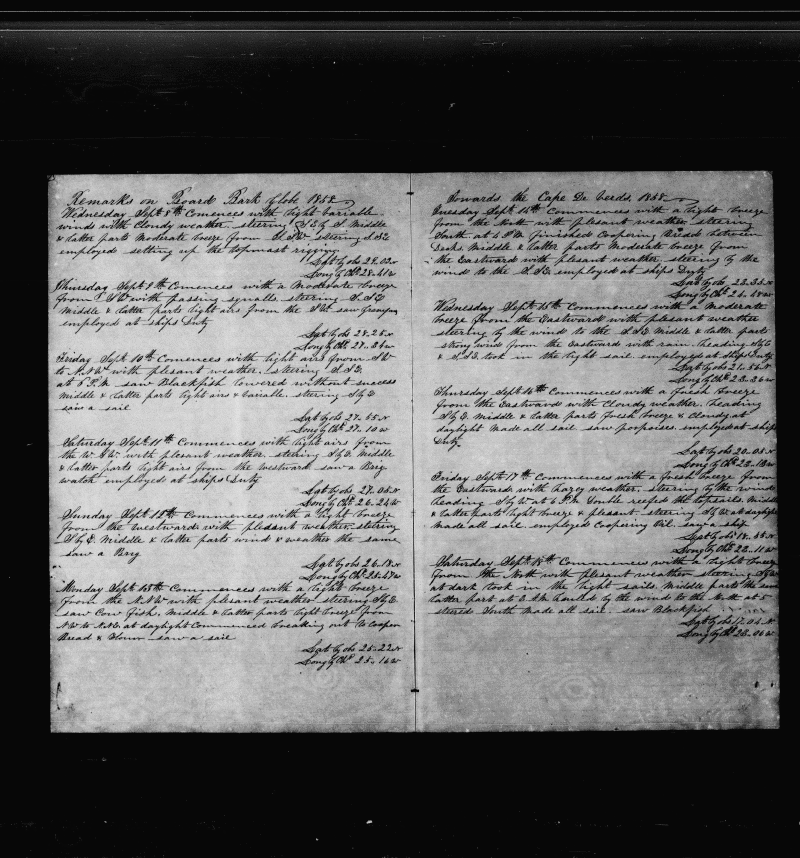 Remarks on Board Bark Globe 1858
Wednesday Sept 8th Comences with light variable
winds with Cloudy weather steering S E by S. Middle
& latter parts Moderate breeze from S.SW steering S.E
employed setting up the topmast rigging
Lat by obs 29.02 N
Long by Chr 28.41 W
Thursday Sept 9th Comences with a Moderate breeze
from SW with passing squalls steering S.SE
Middle & latter parts light airs from the SW saw grampus
employed at ships Duty
Lat by obs 28.25 N
Long by Chr 27.34 W
Friday Sept 10th Comences with light airs from SW
to N.NW with pleasant weather. steering S.SE.
at 5 P.M. saw Blackfish lowered without success
Middle & latter parts light airs & variable. steering S by E
saw a sail
Lat by obs 27.55 N
Long by Chr 27.10 W
Saturday Sept 11th Commences with light airs from
the W.NW with plesant weather, steering S by E. Middle
& latter parts light airs from the westward saw a Brig
watch employed at ships Duty
Lat by obs 27.05 N
Long by Chr 26.24 W
Sunday Sept 12th Commences with a light breeze
from the westward with plesant weather steering
S by E. Middle & latter parts wind & weather the same
saw a Brig
Lat by obs 26.18 N
Long by Chr 25.47 W
Monday Sept 13th Commences with a light breeze
from the N.NW with plesant weather steering S by E.
saw Cow fish, Middle & latter parts light breeze from
NW to N.NE at daylight Commenced breaking out to Cooper
Bread & flour saw a sail
Lat by obs 25.22 N
Long by Chr 25.16 W
Towards the Cape De Verds 1858
Tuesday Sept 14th Commences with a light breeze
from the North with plesant weather steering
South at 5 P.M. finished Coopering Bread between
Decks Middle & latter parts Moderate breeze from
the Eastward with plesant weather steering by the
wind to the S.SE employed at ships Duty
Lat by obs 23.35 N
Long by Chr 24.48 W
Wednesday Sept 15th Commences with a Moderate
breeze from the Eastward with plesant weather
steering by the wind to the S.SE Middle & latter parts
strong wind from the Eastward with rain heading S by E
& S.SE took in the light sail. employed at Ships Duty
Lat by obs 21.54 N
Long by Chr 23.36 W
Thursday Sept 16th Commences with a fresh breeze
from the Eastward with Cloudy weather. heading
S by E. Middle & latter parts fresh breeze & cloudy at
daylight Made all sail saw porpoises employed at ships
Duty.
Lat by obs 20.05 N
Long by Chr 23.18 W
Friday Sept 17th Commences with a fresh breeze from
the Eastward with hazey weather. steering by the wind
heading S by W. at 6 P.M. Double reefed the topsails. Middle
& latter parts light breeze & plesant steering S by W. at daylight
Made all sail. employed Coopering Oil. saw a ship
Lat by obs 18.45 N
Long by Chr 23.11 W
Saturday Sept 18th Commences with a light breeze
from the North with plesant weather steering S by W
at dark took in the light sails. Middle parts the same
latter part at 2 A.M. hauled by the wind to the North at 5
steered South Made all sail saw Blackfish
Lat by obs 17.04 N
Long by Chr 23.06 W